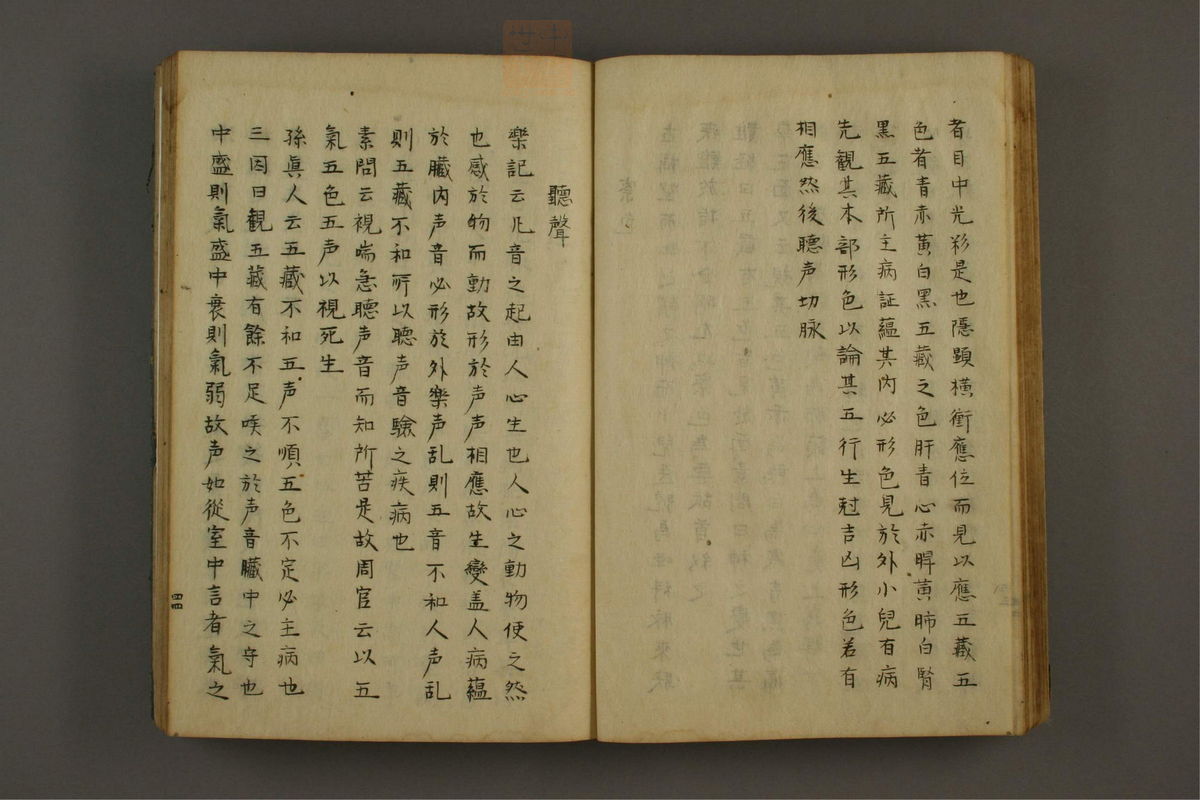 者目中光彩是也隱顕横衝應位而見以應五藏五
色者青赤黃白黑五藏之色肝青心赤脾黃肺白腎
黑五藏所主病証蘊其内必形色見於外小兒有病
先観其本部形色以論其五行生尅吉凶形色若有
相應然後聽声切脉
聽聲
樂記云凡音之起由人心生也人心之動物使之然
也感於物而動故形於声声相應故生變盖人病蘊
於臓内声音必形於外樂声乱則五音不和人声乱
則五藏不和所以聽声音驗之疾病也
素問云視喘息聽声音而知所苦是故周官云以五
氣五色五声以視死生
孫眞人云五藏不和五声不順五色不定必主病也
三因曰観五藏有餘不足候之於声音臓中之守也
中盛則氣盛中衰則氣弱故声如從室中言者氣之
四四